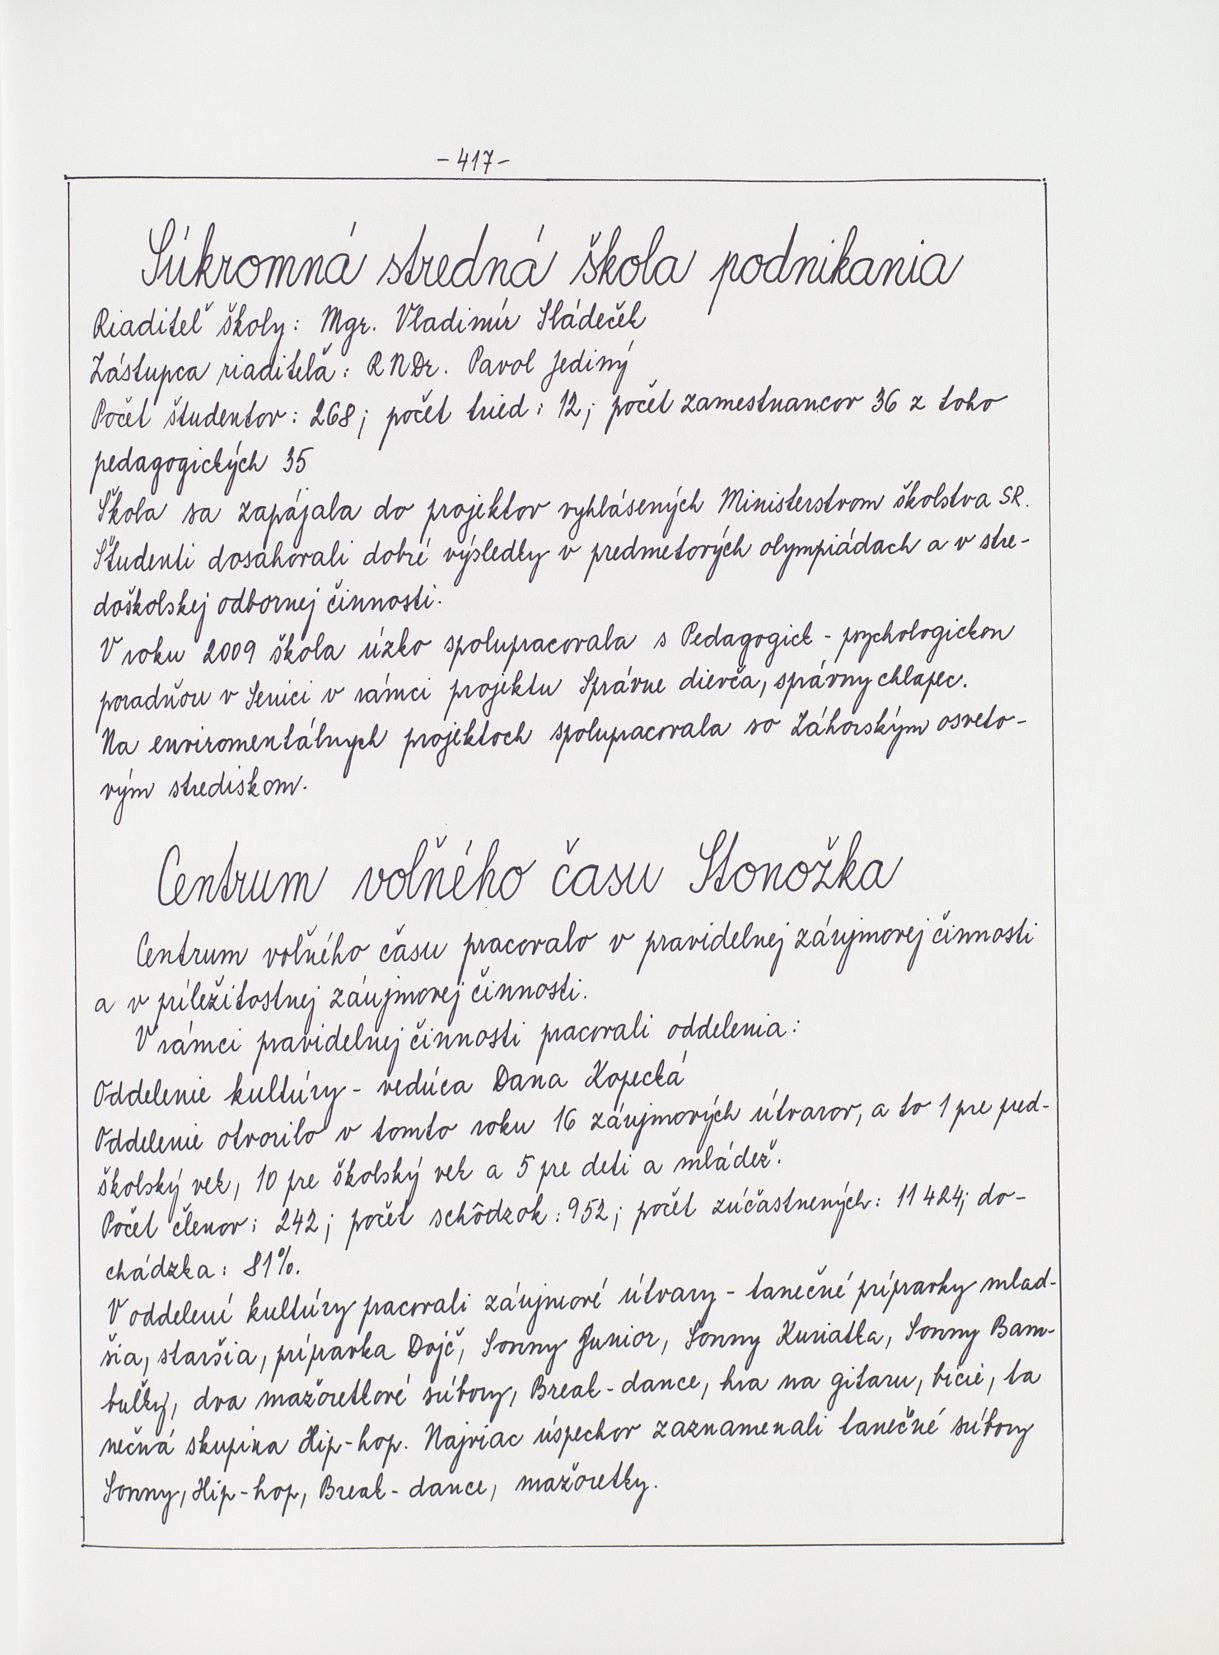 - 417 -
Súkromná stredná škola podnikania
Riaditeľ školy: Mgr. Vladimír Sládeček
Zástupca riaditeľa: RNDr. Pavol Jediný
Počet študentov: 268; počet tried: 12; počet zamestnancov 36 z toho
pedagogických 35
Škola sa zapájala do projektov vyhlásených Ministerstvom školstva SR.
Študenti dosahovali dobré výsledky v predmetových olympiádach a v stre-
doškolskej odbornej činnosti.
V roku 2009 škola úzko spolupracovala s Pedagogick - psychologickou
poradňou v Senici v rámci projektu Správne dievča, správny chlapec.
Na enviromentálnych projektoch spolupracovala so Záhorským osveto-
vým strediskom.
Centrum voľného času Stonožka
Centrum voľného času pracovalo v pravidelnej záujmovej činnosti
a v príležitostnej záujmovej činnosti.
V rámci pravidelnej činnosti pracovali oddelenia:
Oddelenie kultúry - vedúca Dana Kopecká
Oddelenie otvorilo v tomto roku 16 záujmových útvarov, a to 1 pre pred-
školský vek, 10 pre školský vek a 5 pre deti a mládež.
Počet členov: 242; počet schôdzok: 952; počet zúčastnených: 11 424; do-
chádzka: 81%.
V oddelení kultúry pracovali záujmové útvary - tanečné prípravky mlad-
šia, staršia, prípravka Dojč, Sonny Junior, Sonny Kuriatka, Sonny Bam-
buľky, dva mažoretkové súbory, Break-dance, hra na gitaru, bicie, ta
nečná skupina Hip-hop. Najviac úspechov zaznamenali tanečné súbory
Sonny, Hip-hop, Break-dance, mažoretky.